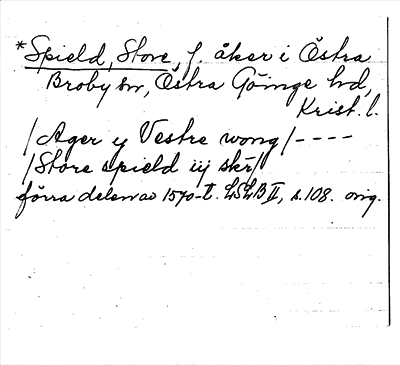 *Spield, Store, f. åker i Östra
Broby sn, Östra Göinge hd,
Krist. l.
/Ager y Vestre wong/----
/Store spield iij skr/
förra delen av 1570-t. LSLB II, s.108. orig.